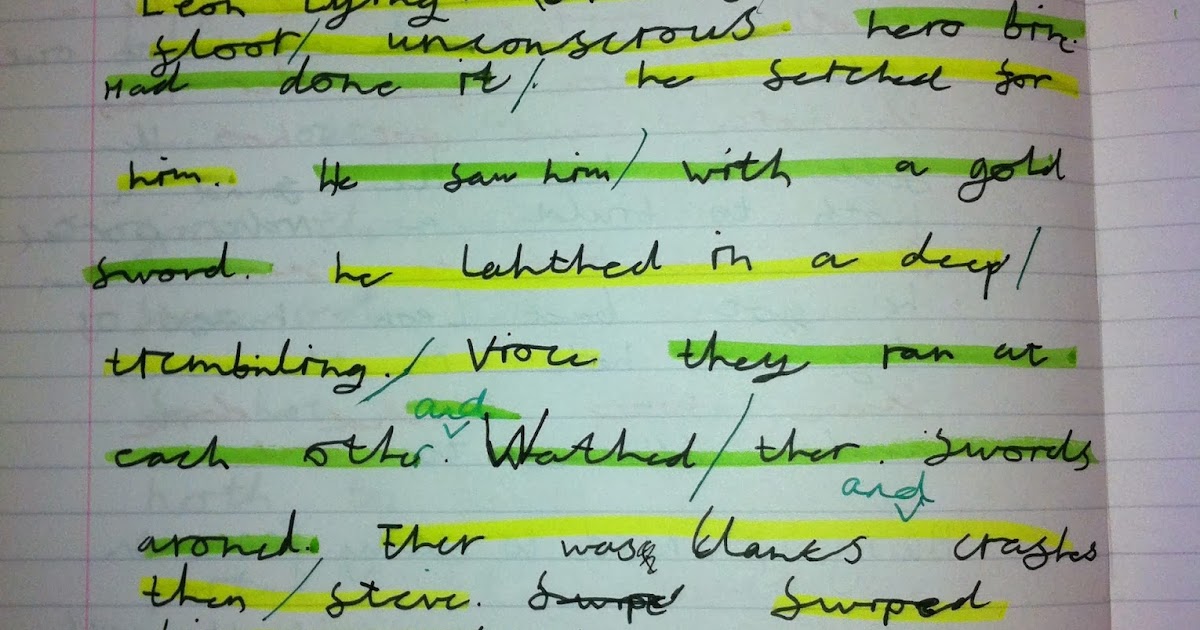 Leon lying
floor/ unconscrous. hero brin.
Had done it/. he fetched for
him. He saw him/ with a gold
sword. he lahthed in a deep/
trembinling./ Vroce they ran at
each other. and Wathed/ ther. Swords
aroned. Ther was clanks and crashes
then / steve. Swipe Swiped